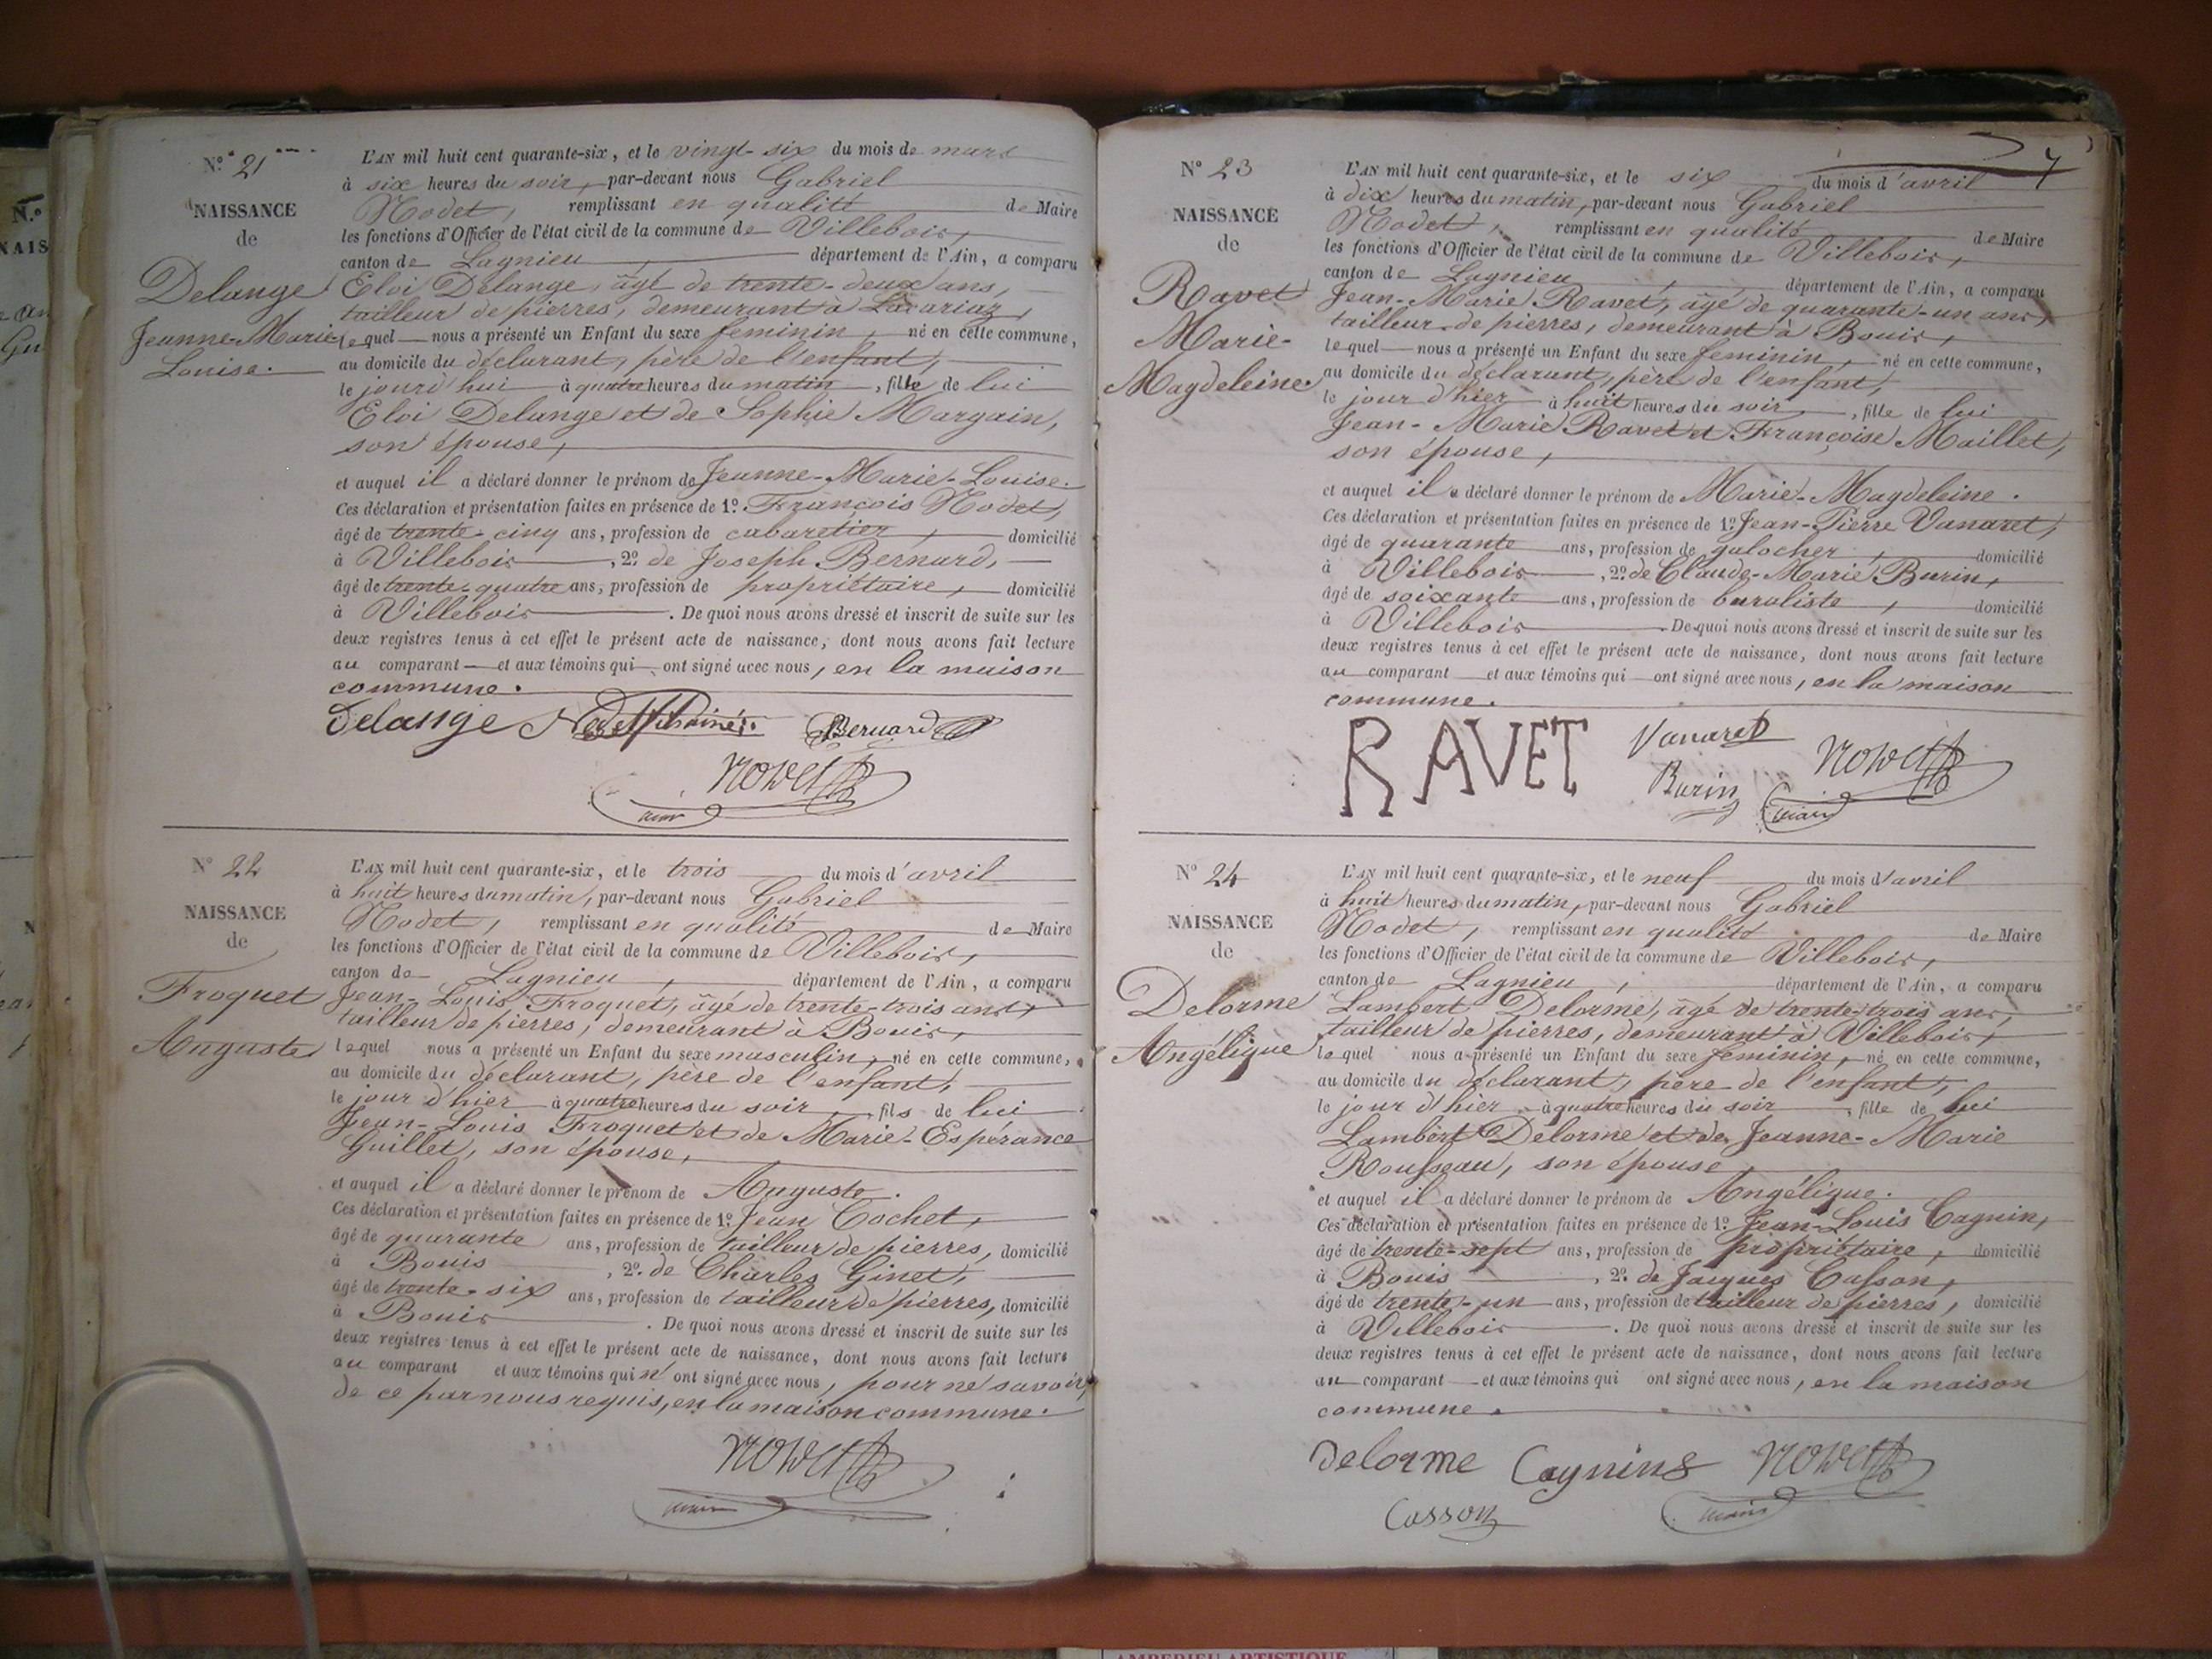 N.º
NAIS
N° 21
NAISSANCE
de
Delange
Jeanne-Marie-
Louise.
L'AN mil huit cent quarante-six, et le vingt-six du mois de mars
à six heures du soir, par-devant nous Gabriel
Nodet, remplissant en qualité de Maire
les fonctions d'Officier de l'état civil de la commune de Villebois,
canton de Lagnieu, département de l'Ain, a comparu
Eloi Delange, âgé de trente-deux ans,
tailleur de pierres, demeurant à
lequel nous a présenté un Enfant du sexe feminin, né en cette commune,
au domicile du déclarant, père de l'enfant,
le jourd'hui à quatre heures du matin, fille de lui
Eloi Delange et de Sophie Margain,
son épouse,
et auquel il a déclaré donner le prénom de Jeanne-Marie-Louise.
Ces déclaration et présentation faites en présence de 1º François Nodet,
âgé de trente-cinq ans, profession de cabaretier, domicilié
à Villebois, 2º de Joseph Bernard,
âgé de trente-quatre ans, profession de propriétaire, domicilié
à Villebois. De quoi nous avons dressé et inscrit de suite sur les
deux registres tenus à cet effet le présent acte de naissance, dont nous avons fait lecture
au comparant et aux témoins qui ont signé avec nous, en la maison
commune.
Delange Bernard
Nodet
maire
N° 22
NAISSANCE
de
Froquet
Auguste
L'AN mil huit cent quarante-six, et le trois du mois d'avril
à huit heures du matin, par-devant nous Gabriel
Nodet, remplissant en qualité de Maire
les fonctions d'Officier de l'état civil de la commune de Villebois,
canton de Lagnieu, département de l'Ain, a comparu
Jean-Louis Froquet, âgé de trente-trois ans,
tailleur de pierres, demeurant à Bouis,
lequel nous a présenté un Enfant du sexe masculin, né en cette commune,
au domicile du déclarant, père de l'enfant,
le jour d'hier à quatre heures du soir, fils de lui
Jean-Louis Froquet et de Marie-Espérance
Guillet, son épouse,
et auquel il a déclaré donner le prénom de Auguste.
Ces déclaration et présentation faites en présence de 1º Jean Cochet,
âgé de quarante ans, profession de tailleur de pierres, domicilié
à Bouis, 2º de Charles Ginet,
âgé de trente-six ans, profession de tailleur de pierres, domicilié
à Bouis. De quoi nous avons dressé et inscrit de suite sur les
deux registres tenus à cet effet le présent acte de naissance, dont nous avons fait lecture
au comparant et aux témoins qui n'ont signé avec nous, pour ne savoir,
de ce par nous requis, en la maison commune.
Nodet
maire
7
N° 23
NAISSANCE
de
Ravet
Marie-
Magdeleine.
L'AN mil huit cent quarante-six, et le six du mois d'avril
à dix heures du matin, par-devant nous Gabriel
Nodet, remplissant en qualité de Maire
les fonctions d'Officier de l'état civil de la commune de Villebois,
canton de Lagnieu, département de l'Ain, a comparu
Jean-Marie Ravet, âgé de quarante-un ans,
tailleur de pierres, demeurant à Bouis,
lequel nous a présenté un Enfant du sexe feminin, né en cette commune,
au domicile du déclarant, père de l'enfant,
le jour d'hier à huit heures du soir, fille de lui
Jean-Marie Ravet et Françoise Maillet,
son épouse,
et auquel il a déclaré donner le prénom de Marie-Magdeleine.
Ces déclaration et présentation faites en présence de 1º Jean-Pierre Vanaret,
âgé de quarante ans, profession de galocher, domicilié
à Villebois, 2º de Claude-Marie Burin,
âgé de soixante ans, profession de buraliste, domicilié
à Villebois. De quoi nous avons dressé et inscrit de suite sur les
deux registres tenus à cet effet le présent acte de naissance, dont nous avons fait lecture
au comparant et aux témoins qui ont signé avec nous, en la maison
commune.
RAVET Vanaret Nodet
Burin maire
N° 24
NAISSANCE
de
Delorme
Angélique
L'AN mil huit cent quarante-six, et le neuf du mois d'avril
à huit heures du matin, par-devant nous Gabriel
Nodet, remplissant en qualité de Maire
les fonctions d'Officier de l'état civil de la commune de Villebois,
canton de Lagnieu, département de l'Ain, a comparu
Lambert Delorme, âgé de trente-trois ans,
tailleur de pierres, demeurant à Villebois,
lequel nous a présenté un Enfant du sexe feminin, né en cette commune,
au domicile du déclarant, père de l'enfant,
le jour d'hier à quatre heures du soir, fille de lui
Lambert Delorme et de Jeanne-Marie
Rousseau, son épouse,
et auquel il a déclaré donner le prénom de Angélique.
Ces déclaration et présentation faites en présence de 1º Jean-Louis Cagnin,
âgé de trente-sept ans, profession de propriétaire, domicilié
à Bouis, 2º de Jacques Casson,
âgé de trente-un ans, profession de tailleur de pierres, domicilié
à Villebois. De quoi nous avons dressé et inscrit de suite sur les
deux registres tenus à cet effet le présent acte de naissance, dont nous avons fait lecture
au comparant et aux témoins qui ont signé avec nous, en la maison
commune.
Delorme Cagnin Nodet
Casson maire
AMBERIEU ARTISTIQUE